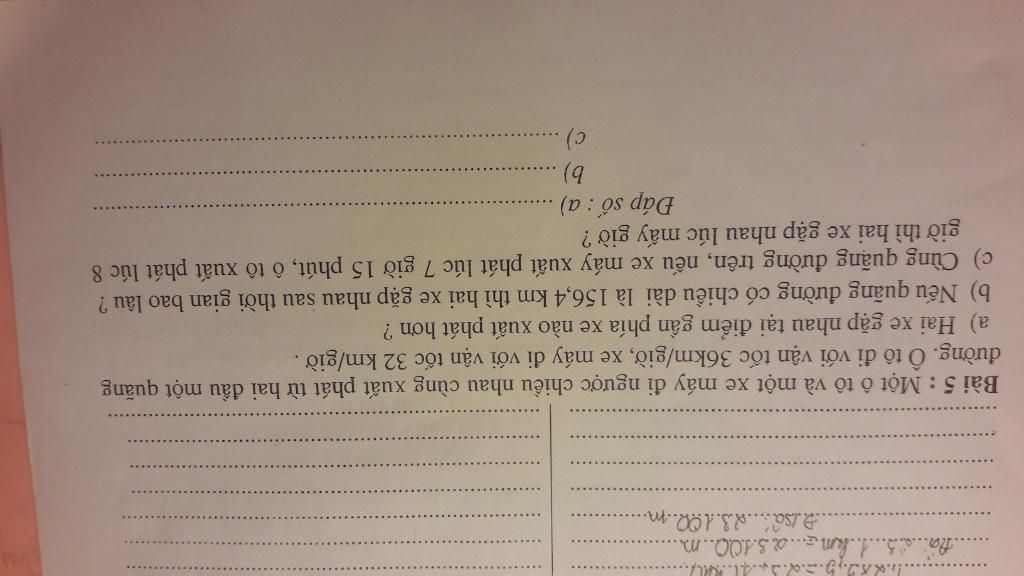 Đổi 23.1 km = 23100 m
Đ/số: 23100 m
Bài 5 : Một ô tô và một xe máy đi ngược chiều nhau cùng xuất phát từ hai đầu một quãng
đường. Ô tô đi với vận tốc 36km/giờ, xe máy đi với vận tốc 32 km/giờ .
a) Hai xe gặp nhau tại điểm gần phía xe nào xuất phát hơn ?
b) Nếu quãng đường có chiều dài là 156,4 km thì hai xe gặp nhau sau thời gian bao lâu ?
c) Cùng quãng đường trên, nếu xe máy xuất phát lúc 7 giờ 15 phút, ô tô xuất phát lúc 8
giờ thì hai xe gặp nhau lúc mấy giờ ?
Đáp số : a)
b)
c)